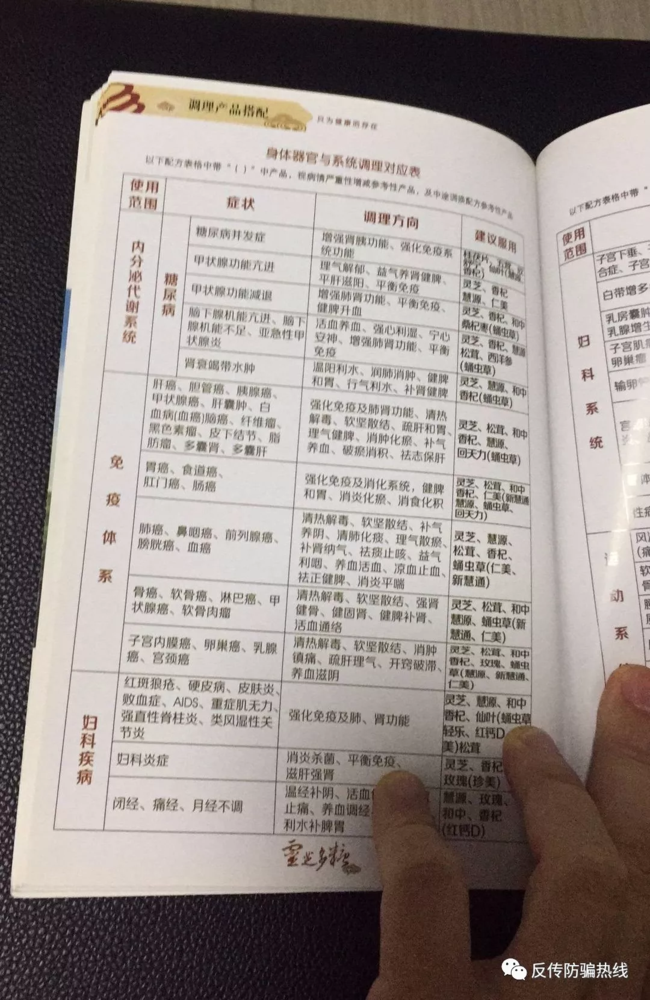 调理产品搭配
只为健康而存在
身体器官与系统调理对应表
以下配方表格中带“( )”中产品，视病情严重性增减参考性产品，及中途调换配方参考性产品
使用
范围
症状
调理方向
建议服用
内分泌代谢系统
糖尿病
糖尿病并发症
增强肾胰功能、强化免疫系
统功能
甲状腺功能亢进
理气解郁、益气养肾健脾、
平肝滋阴、平衡免疫
灵芝、香杞
甲状腺功能减退
增强肺肾功能，平衡免疫、
健脾升血
慧源、仁美
脑下腺机能亢进、脑下
腺机能不足、亚急性甲
状腺炎
活血养血、强心利湿、宁心
安神、增强肺肾功能，平衡
免疫
灵芝、香杞、和中
桑杞枣(蛹虫草)
灵芝、香杞、慧源
松茸、西洋参
(蛹虫草)
肾衰竭带水肿
温阳利水、润肺消肿、健脾
和胃、行气利水、补肾健脾
灵芝、慧源、和中
香杞(蛹虫草)
免疫体系
肝癌、胆管癌、胰腺癌、
甲状腺癌、肝囊肿、白
血病(血癌)脑癌、纤维瘤、
黑色素瘤、皮下结节、脂
肪瘤、多囊肾、多囊肝
强化免疫及肺肾功能、清热
解毒、软坚散结、疏肝和胃、
理气健脾、消肿化瘀、补气
养血、破瘀消积、祛志保肝
灵芝、松茸、和中
香杞、慧源、
回天力(蛹虫草)
胃癌、食道癌、
肛门癌、肠癌
强化免疫及消化系统，健脾
和胃、消炎化瘀、消食化积
灵芝、松茸、和中
香杞、仁美(新慧通
慧源、蛹虫草、
回天力)
肺癌、鼻咽癌、前列腺癌、
膀胱癌、血癌
清热解毒、软坚散结、补气
养阴、清肺化痰、理气散瘀、
补肾纳气、祛痰止咳、益气
利咽、养血活血、凉血止血、
祛正健脾、消炎平喘
灵芝、慧源、
松茸、香杞、
蛹虫草(仁美、
新慧通)
骨癌、软骨癌、淋巴癌、甲
状腺癌、软骨肉瘤
清热解毒、软坚散结、强肾
健骨、健固肾、健脾补肾、
活血通络
灵芝、松茸、和中
慧源、蛹虫草(新
慧通、仁美)
子宫内膜癌、卵巢癌、乳腺
癌、宫颈癌
清热解毒、软坚散结、消肿
镇痛、疏肝理气、开窍破滞、
养血滋阴
灵芝、松茸、和中
香杞、玫瑰、蛹虫
草(慧源、新慧通、
仁美)
红斑狼疮、硬皮病、皮肤炎、
败血症、AIDS、重症肌无力、
强直性脊柱炎、类风湿性关
节炎
强化免疫及肺、肾功能
灵芝、慧源、和中
香杞、仙叶(蛹虫草
轻乐、红钙D
美)松茸
妇科疾病
妇科炎症
消炎杀菌、平衡免疫、
滋肝强肾
灵芝、香杞
玫瑰(珍美)
闭经、痛经、月经不调
温经补阴、活血
止痛、养血调经
利水补脾胃
慧源、玫瑰、
和中、香杞
(红钙D)
以下配方表格中带“
使用
范围
妇科系统
子宫下垂、
合症、子宫
白带增多
乳房囊肿
乳腺增生
子宫肌
卵巢瘤
输卵
动系
反传防骗热线